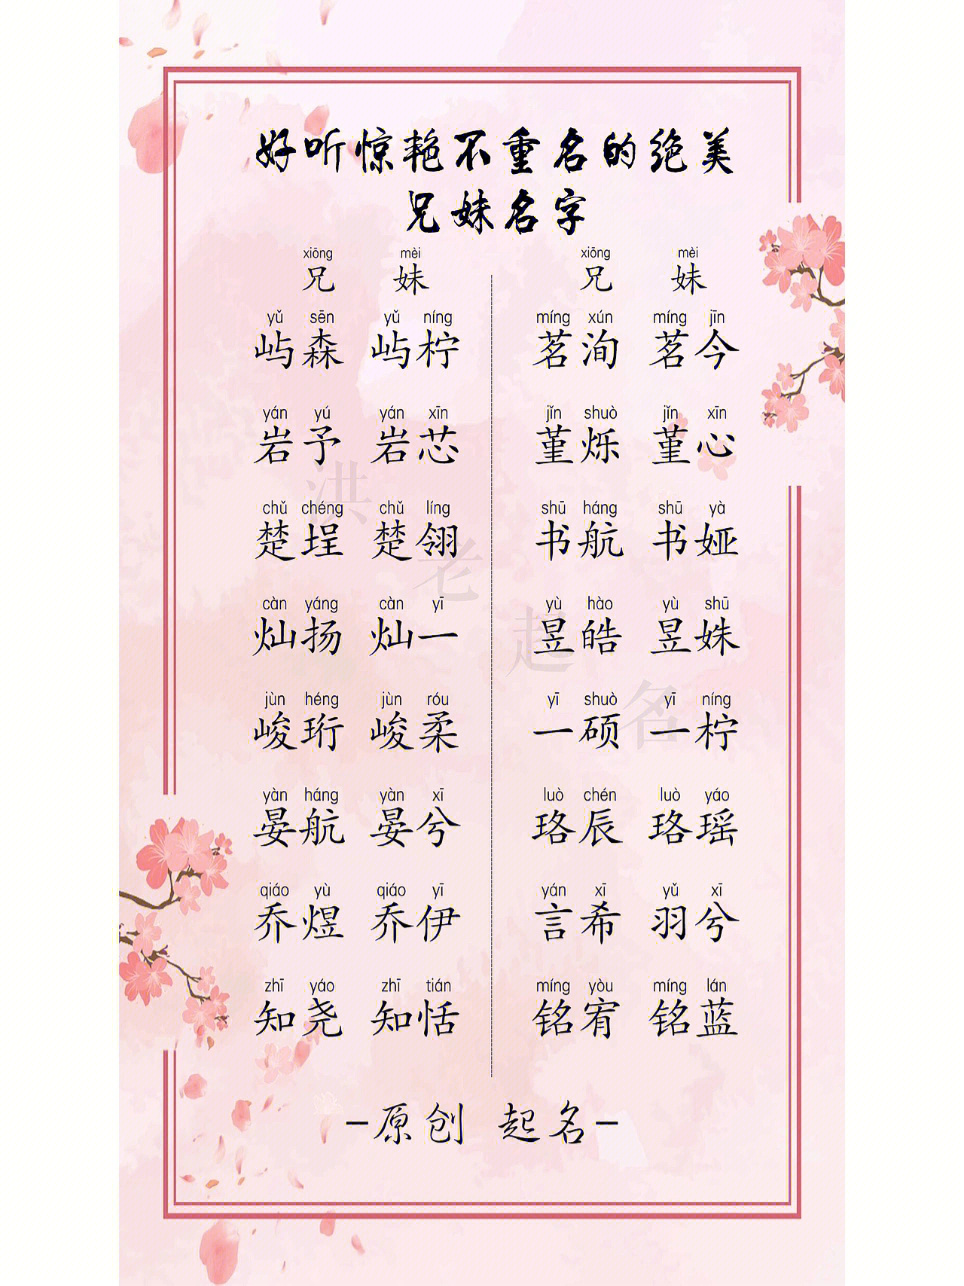 好听惊艳不重名的绝美
兄妹名字
xiōng mèi xiōng mèi
兄 妹 兄 妹
yǔ sēn yǔ níng míng xún míng jīn
屿森 屿柠 茗洵 茗今
yán yú yán xīn jǐn shuò jǐn xīn
岩予 岩芯 堇烁 堇心
chǔ chéng chǔ líng shū háng shū yà
楚埕 楚翎 书航 书娅
càn yáng càn yī yù hào yù shū
灿扬 灿一 昱皓 昱姝
jùn héng jùn róu yī shuò yī níng
峻珩 峻柔 一硕 一柠
yàn háng yàn xī luò chén luò yáo
晏航 晏兮 珞辰 珞瑶
qiáo yù qiáo yī yán xī yǔ xī
乔煜 乔伊 言希 羽兮
zhī yáo zhī tián míng yòu míng lán
知尧 知恬 铭宥 铭蓝
-原创 起名-
洪老起名